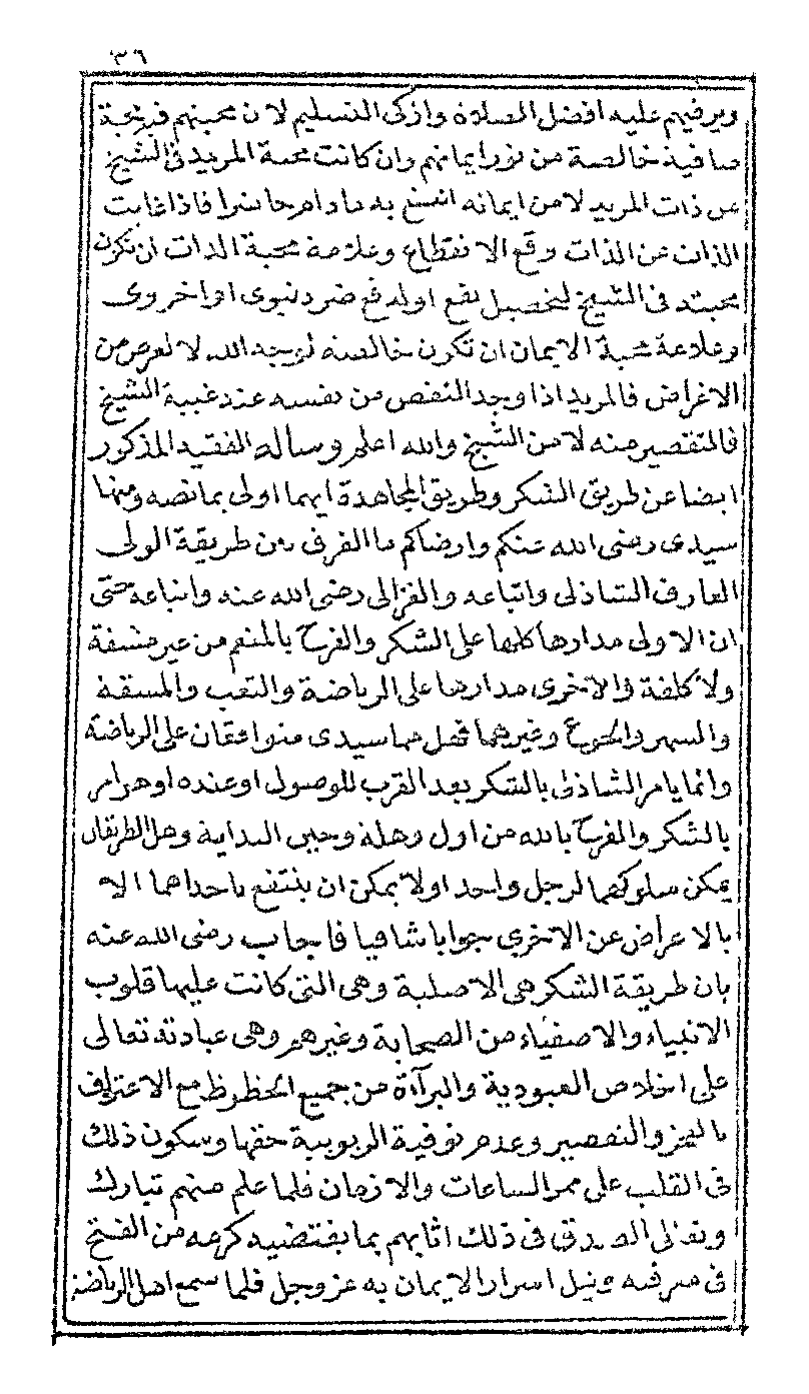 ٣٦
ويرقيهم عليه افضل الصلاة وازكى التسليم لان محبتهم فيه محبة
صافية خالصة من نور ايمانهم وان كانت محبة المريد فى الشيخ
من ذات المريد لا من ايمانه انتفع به مادام حاضرا فاذا غابت
الذات عن الذات وقع الانقطاع وعلامة محبة الذات ان تكون
محبته فى الشيخ لتحصيل نفع اولدفع ضر دنيوى او اخروى
وعلامة محبة الايمان ان تكون خالصة لوجه الله لا لغرض من
الاغراض فالمريد اذا وجد النقص من نفسه عند غيبة الشيخ
فالتقصير منه لا من الشيخ والله اعلم وساله الفقيه المذكور
ايضا عن طريق الشكر وطريق المجاهدة ايهما اولى بما نصه ومنها
سيدى رضى الله عنكم وارضاكم ما الفرق بين طريقة الولى
العارف الشاذلى واتباعه والغزالى رضى الله عنه واتباعه حتى
ان الاولى مدارها كلها على الشكر والفرح بالمنعم من غير مشقة
ولا كلفة والاخرى مدارها على الرياضة والتعب والمشقة
والسهر والجوع وغيرهما فهل هما سيدى متوافقان على الرياضة
وانما يامر الشاذلى بالشكر بعد القرب للوصول او عنده او هو امر
بالشكر والفرح بالله من اول وهلة وحين البداية وهل الطريقان
يمكن سلوكهما لرجل واحد اولا يمكن ان ينتفع باحداهما الا
بالاعراض عن الاخرى جوابا شافيا فاجاب رضى الله عنه
بان طريقة الشكر هى الاصلية وهى التى كانت عليها قلوب
الانبياء والاصفياء من الصحابة وغيرهم وهى عبادته تعالى
على اخلاص العبودية والبرآءة من جميع الحظوظ مع الاعتراف
بالعجز والتقصير وعدم توفية الربوبية حقها وسكون ذلك
فى القلب على ممر الساعات والازمان فلما علم منهم تبارك
وتعالى الصدق فى ذلك اثابهم بما يقتضيه كرمه من الفتح
فى معرفته ونيل اسرار الايمان به عز وجل فلما سمع اهل الرياضة